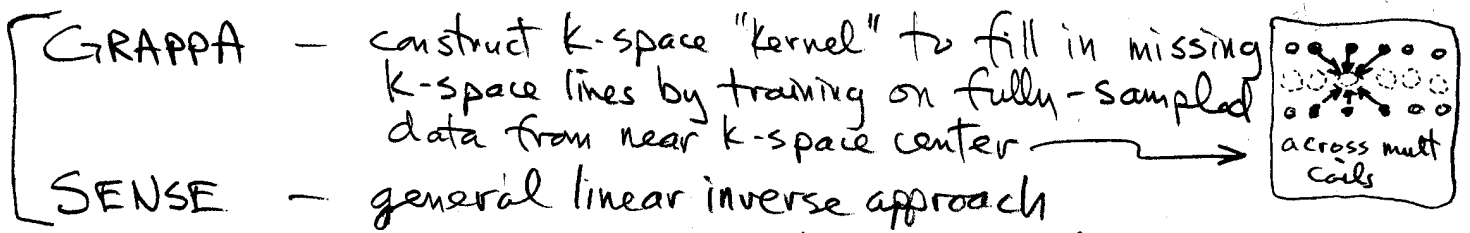 GRAPPA – construct k-space "kernel" to fill in missing
k-space lines by training on fully-sampled
data from near k-space center
across mult
coils
SENSE – general linear inverse approach